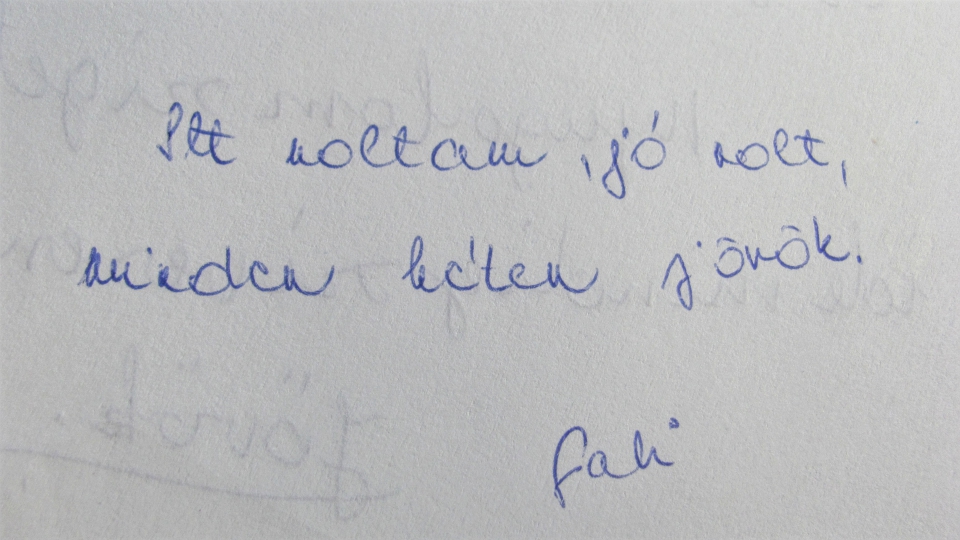 Itt voltam, jó volt,
minden héten jövök.